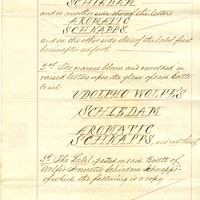 SCHIEDAM
and on another side thereof the letters
AROMATIC
SCHNAPPS.
and on the other side there of the label first
hereinafter set forth
2nd The names blown and moulded in
raised letters upon the glass of each Bottle
to wit
UDOLPHO WOLFE'S
SCHIEDAM
AROMATIC
SCHNAPPS, and not thereof
3d The Label pasted on each Bottle of
Wolfe's Aromatic Schiedam Schnapps
of which the following is a copy